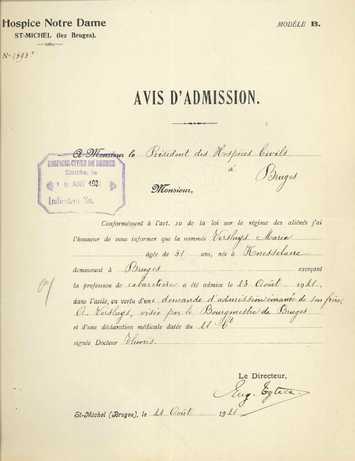 Hospice Notre Dame
ST-MICHEL (lez Bruges).
MODÈLE B.
AVIS D'ADMISSION.
A Monsieur le Président des Hospices Civils
à
Bruges
HOSPICES CIVILS DE BRUGES
Monsieur,
Conformément à l'art. 10 de la loi sur le régime des aliénés j'ai
l'honneur de vous informer que la nommée Versluys Maria
âgée de 31 ans, née à Knesselaere
demeurant à Bruges exerçant
la profession de cabaretière a été admise le Août 1921,
dans l'asile, en vertu d'une demande d'admission émanée de son frère
Versluys, visée par le Bourgmestre de Bruges
et d'une déclaration médicale datée du
signée Docteur
Le Directeur,
St-Michel (Bruges), le Août 1921